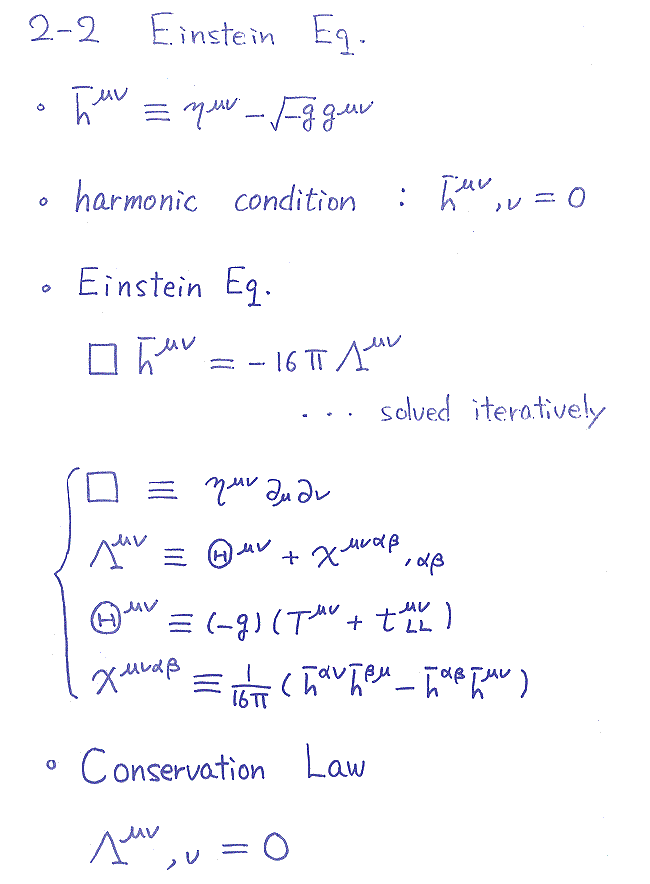 2-2 Einstein Eq.
∘ h̄^{μν} ≡ η^{μν} - √-g g^{μν}
∘ harmonic condition : h̄^{μν}_{,ν} = 0
∘ Einstein Eq.
□ h̄^{μν} = - 16 π Λ^{μν}
... solved iteratively
□ ≡ η^{μν} ∂_μ ∂_ν
Λ^{μν} ≡ Θ^{μν} + χ^{μναβ}_{,αβ}
Θ^{μν} ≡ (-g) ( T^{μν} + t_{LL}^{μν} )
χ^{μναβ} ≡ 1/16π ( h̄^{αν} h̄^{βμ} - h̄^{αβ} h̄^{μν} )
∘ Conservation Law
Λ^{μν}_{,ν} = 0